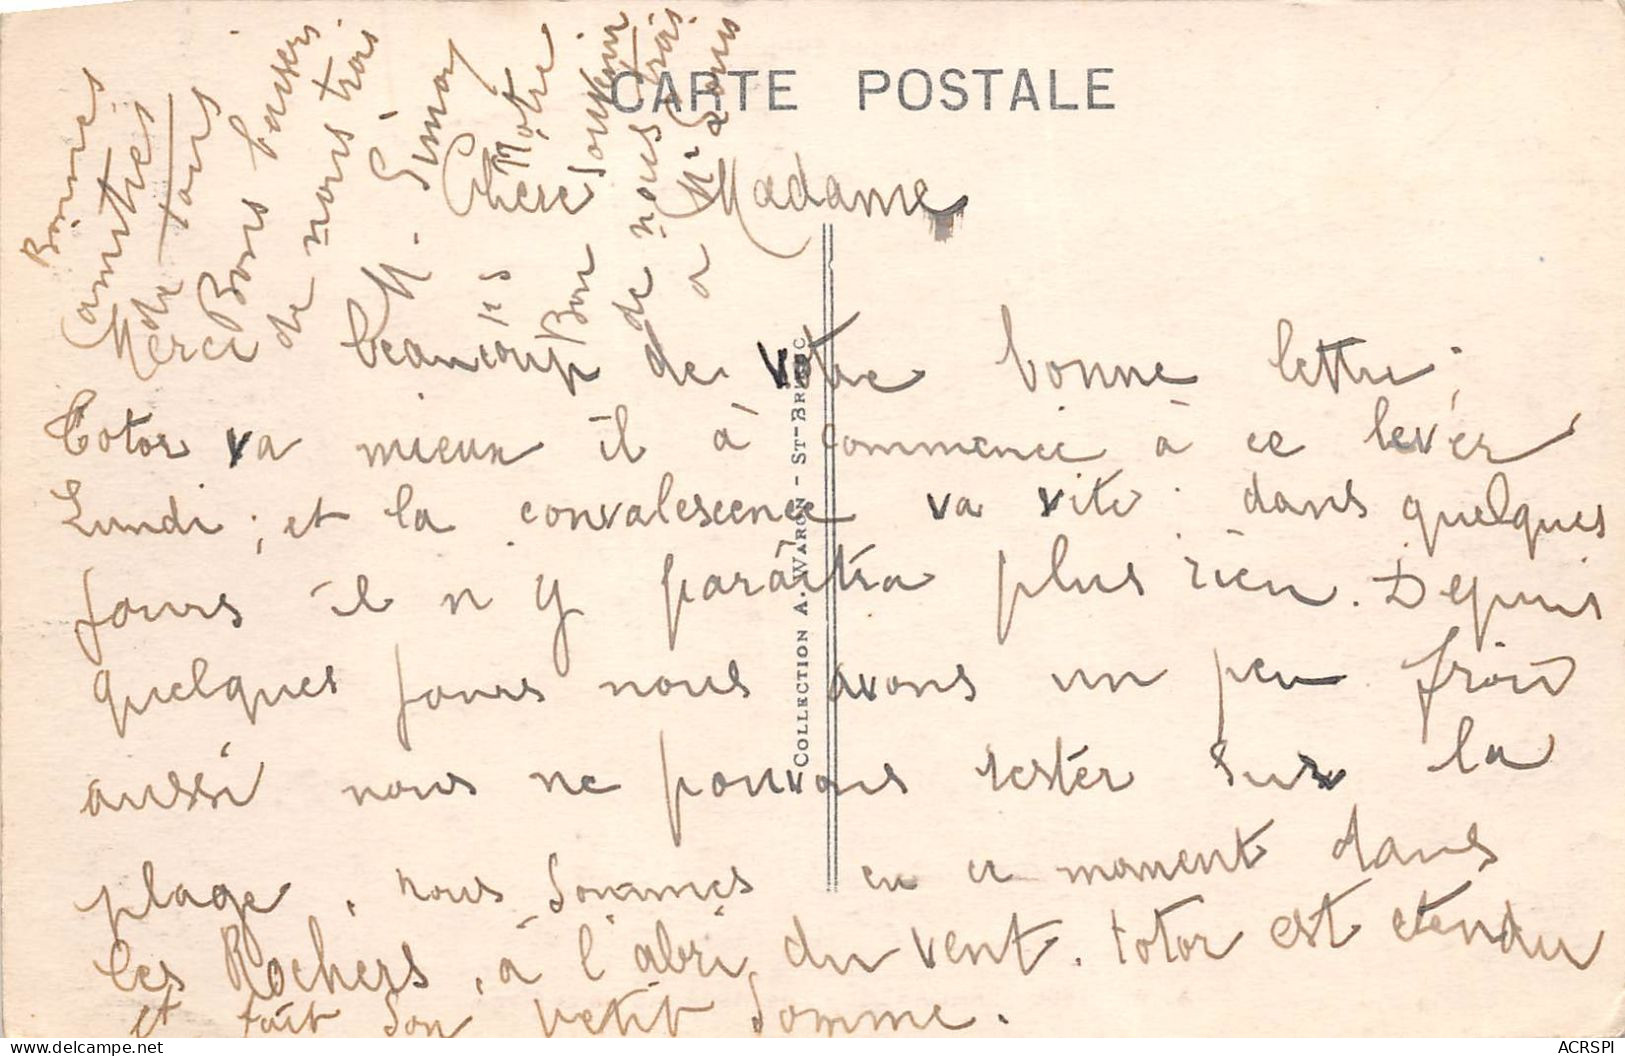 CARTE POSTALE
Chère Madame
Merci beaucoup de votre bonne lettre;
Totor va mieux il à commencé à ce lever
Lundi; et la convalescence va vite. dans quelques
jours il n y paraitra plus rien. Depuis
quelques jours nous avons un peu froid
aussi nous ne pouvons rester sur la
plage, nous sommes en ce moment dans
les Rochers, à l'abri du vent. totor est etendu
et fait son petit somme.
Bonnes
amitiés
de tous
Bons baisers
de nous trois
M. Simon
Notre
Bon Souvenir
de nous trois
a Mr Louis
COLLECTION A. WARON - ST-BRIEUC
ACRSPI